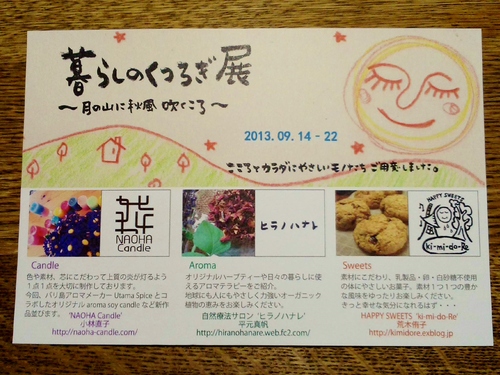 暮らしのくつろぎ展
～月の山に秋風 吹くころ～
2013.09.14 - 22
こころとカラダにやさしいモノたちご用意しました。
NAOHA
Candle
ヒラノハナレ
HAPPY SWEETS
ki-mi-do-Re
Candle
色や素材、芯にこだわって上質の炎が灯るよう
1点1点を大切に制作しております。
今回、バリ島アロマメーカー Utama Spice とコ
ラボしたオリジナル aroma soy candle など新作
品並びます。
'NAOHA Candle'
小林直子
http://naoha-candle.com/
Aroma
オリジナルハーブティーや日々の暮らしに使
えるアロマテラピーをご紹介。
地球にも人にもやさしく力強いオーガニック
植物の恵みをお楽しみください。
自然療法サロン 'ヒラノハナレ'
平元真帆
http://hiranohanare.web.fc2.com/
Sweets
素材にこだわり、乳製品・卵・白砂糖不使用
の体にやさしいお菓子。素材1つ1つの豊か
な風味をゆったりお楽しみください。
きっと幸せな気分になれるはず・・・
HAPPY SWEETS 'ki-mi-do-Re'
荒木侑子
http://kimidore.exblog.jp